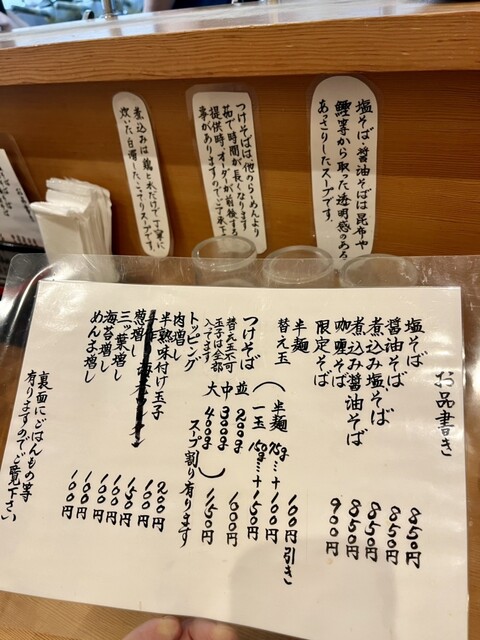 塩そば・醤油そばは昆布や
鰹等から取った透明感のある
あっさりしたスープです。
つけそばは他のらーめんより
茹で時間が長くなります
提供時、オーダーが前後する
事がありますのでご了承下
煮込みは鶏と水だけで丁寧に
炊いた白濁したこってりスープです。
お品書き
塩そば 850円
醤油そば 850円
煮込み塩そば 850円
煮込み醤油そば 850円
咖喱そば 900円
限定そば
半麺 100円引き
替え玉 (半麺 75g…+100円
一玉 150g…+150円
つけそば 並 200g
替え玉不可 中 300g +100円
玉子は全部 大 400g +150円
入ってます スープ割り有ります)
トッピング
肉増し 200円
半熟味付け玉子 100円
葱増し 150円
三ッ葉増し 100円
海苔増し 100円
めんま増し 100円
裏面にごはんもの等
有りますのでご覧下さい